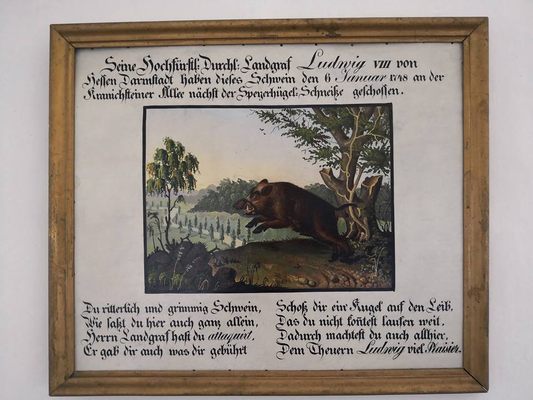 Seine Hochfürstl: Durchl: Landgraf Ludwig VIII von
Hessen Darmstadt haben dieses Schwein den 6 Januar 1748 an der
Kranichsteiner Allee nächst der Speyerhügel: Schneiße geschossen.
Du ritterlich und grimmig Schwein,
Wie saßt du hier auch ganz allein,
Herrn Landgraf hast du attaquirt,
Er gab dir auch was dir gebührt
Schoß dir ein Kugel auf den Leib,
Das du nicht kon̄test laufen weit,
Dadurch machtest du auch allhier,
Dem Theuern Ludwig viel Plaisier.